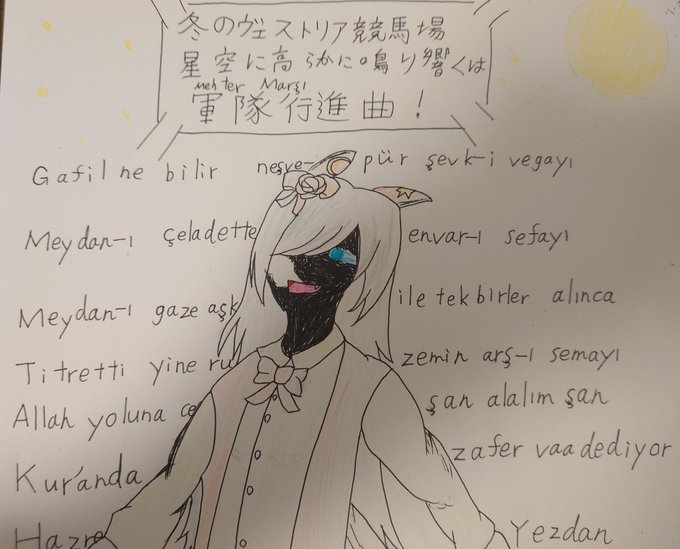 冬のヴェストリア競馬場
星空に高らかに鳴り響くは
Mehter Marşı
軍隊行進曲！
Gafil ne bilir neşve- pür şevk-i vegayı
Meydan-ı çeladette envar-ı sefayı
Meydan-ı gaze aşk ile tekbirler alınca
Titretti yine ru zemin arş-ı semayı
Allah yoluna ce şan alalım şan
Kur'anda zafer vaadediyor
Hazre Yezdan